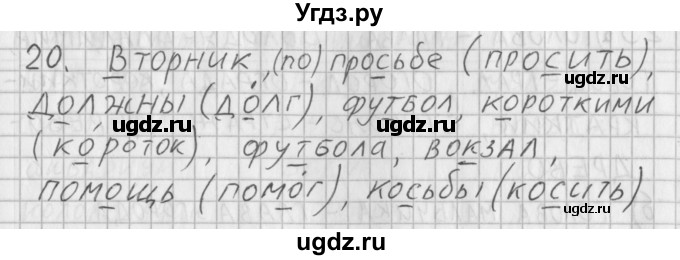 Угдз.ру
20. Вторник, (по) просьбе (просить),
должны (до́лг), футбол, короткими
(ко́роток), футбола, вокзал,
помощь (помо́г), косьбы (косить)
uhgdz.ru
uhgdz.ru
uhgdz.ru
uhgdz.ru
uhgdz.ru